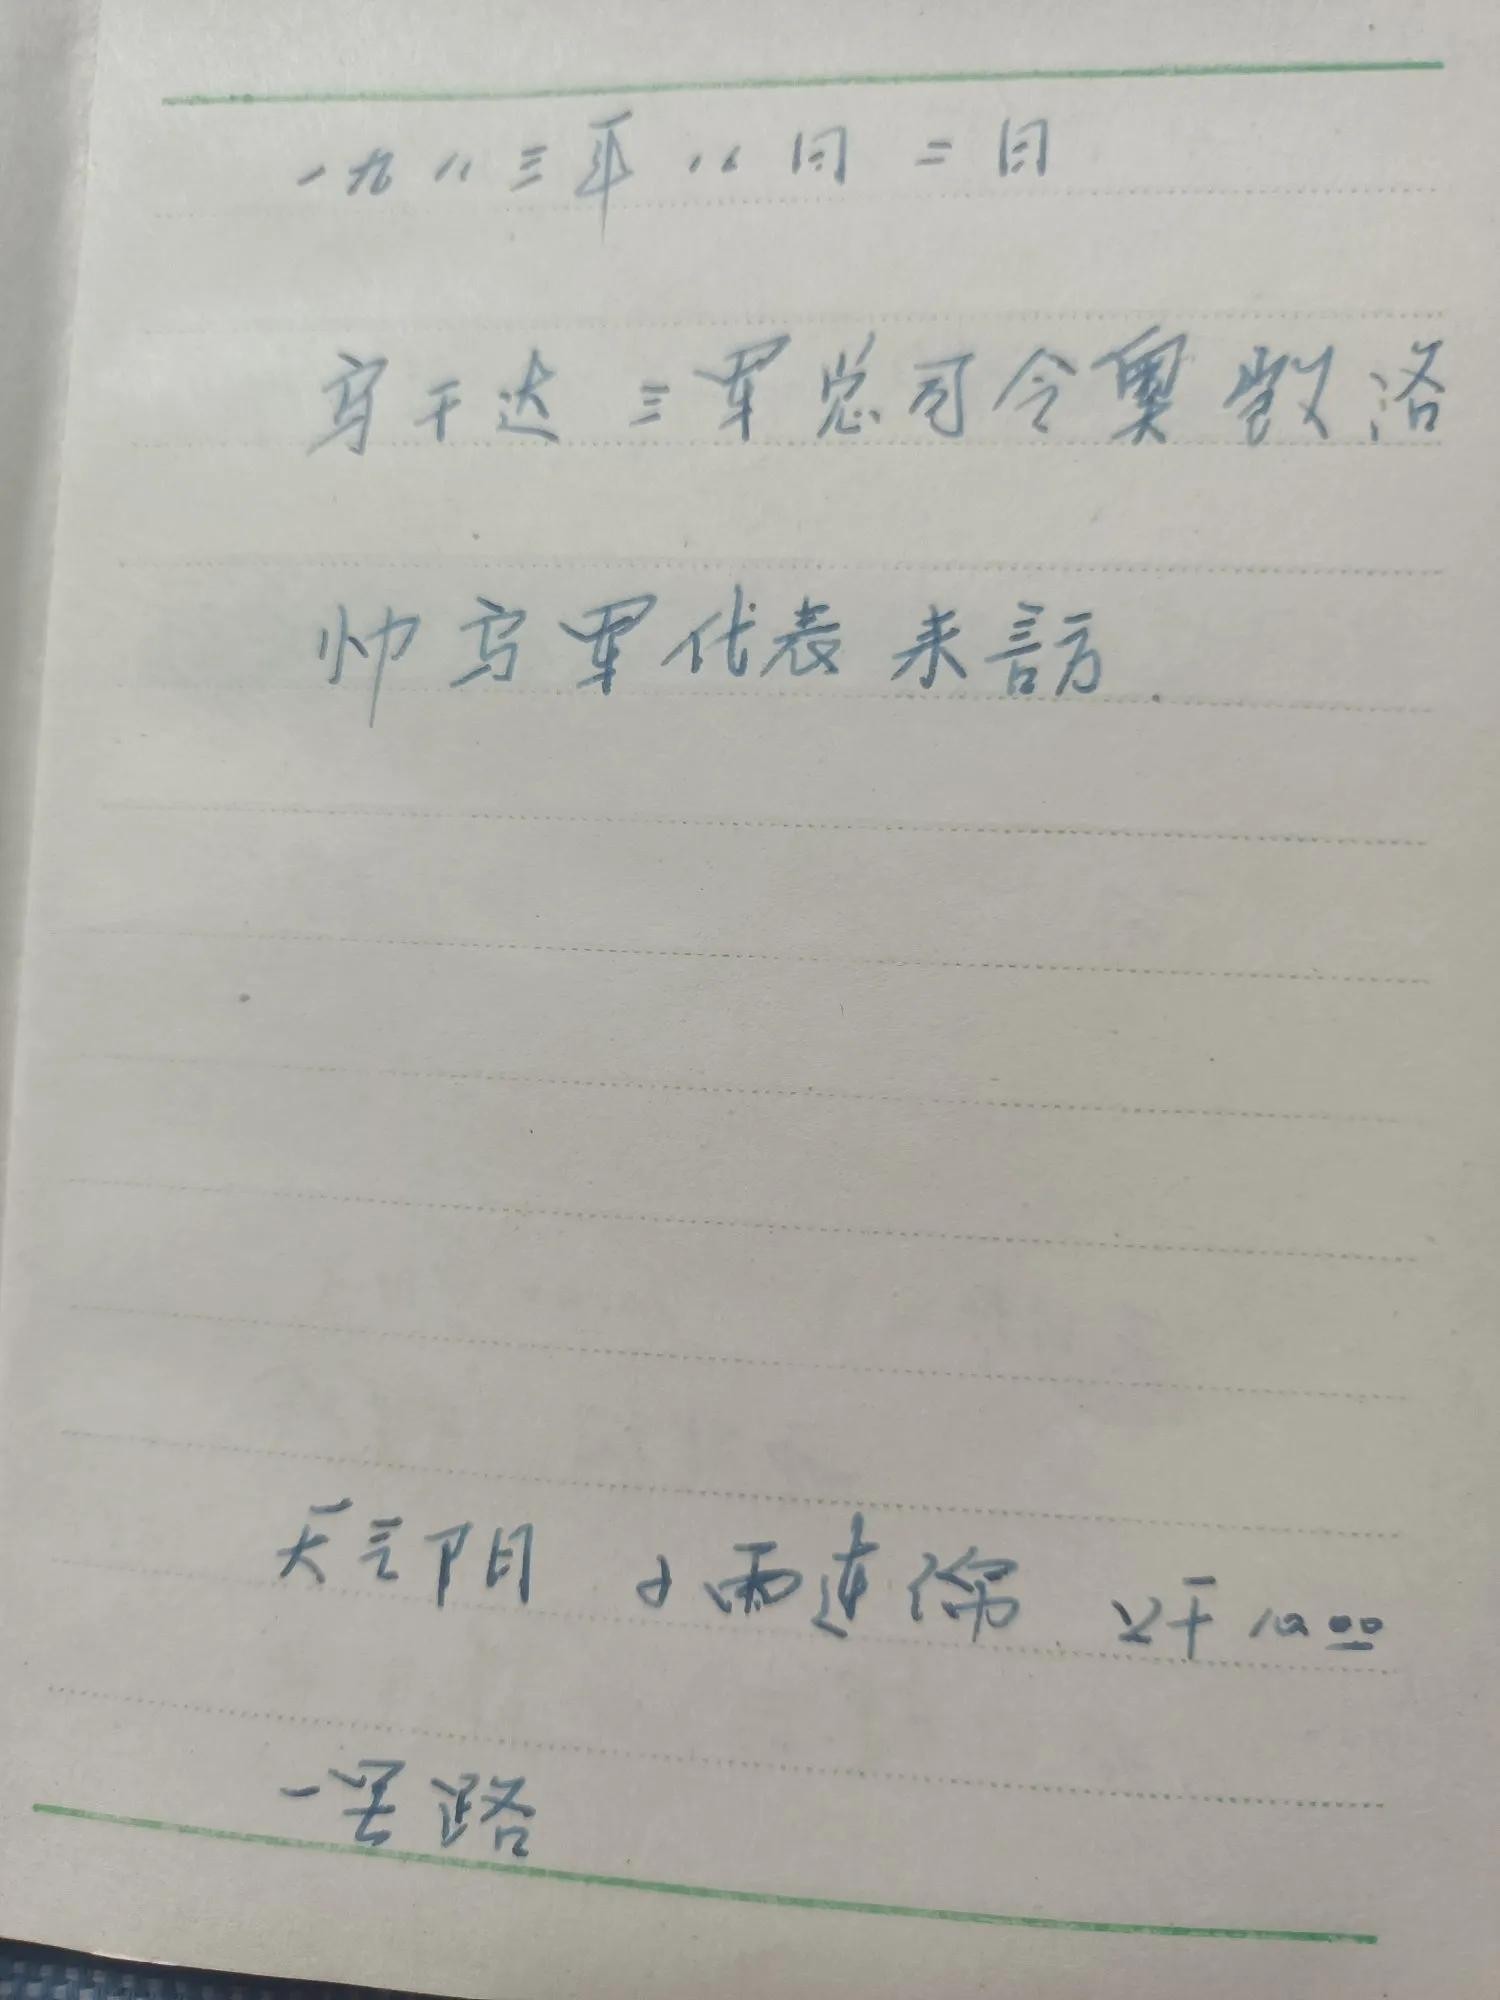 一九八三年八月二日
乌干达三军总司令奥数洛
帅乌军代表来訪
天气阴 小雨连绵 于
一号路